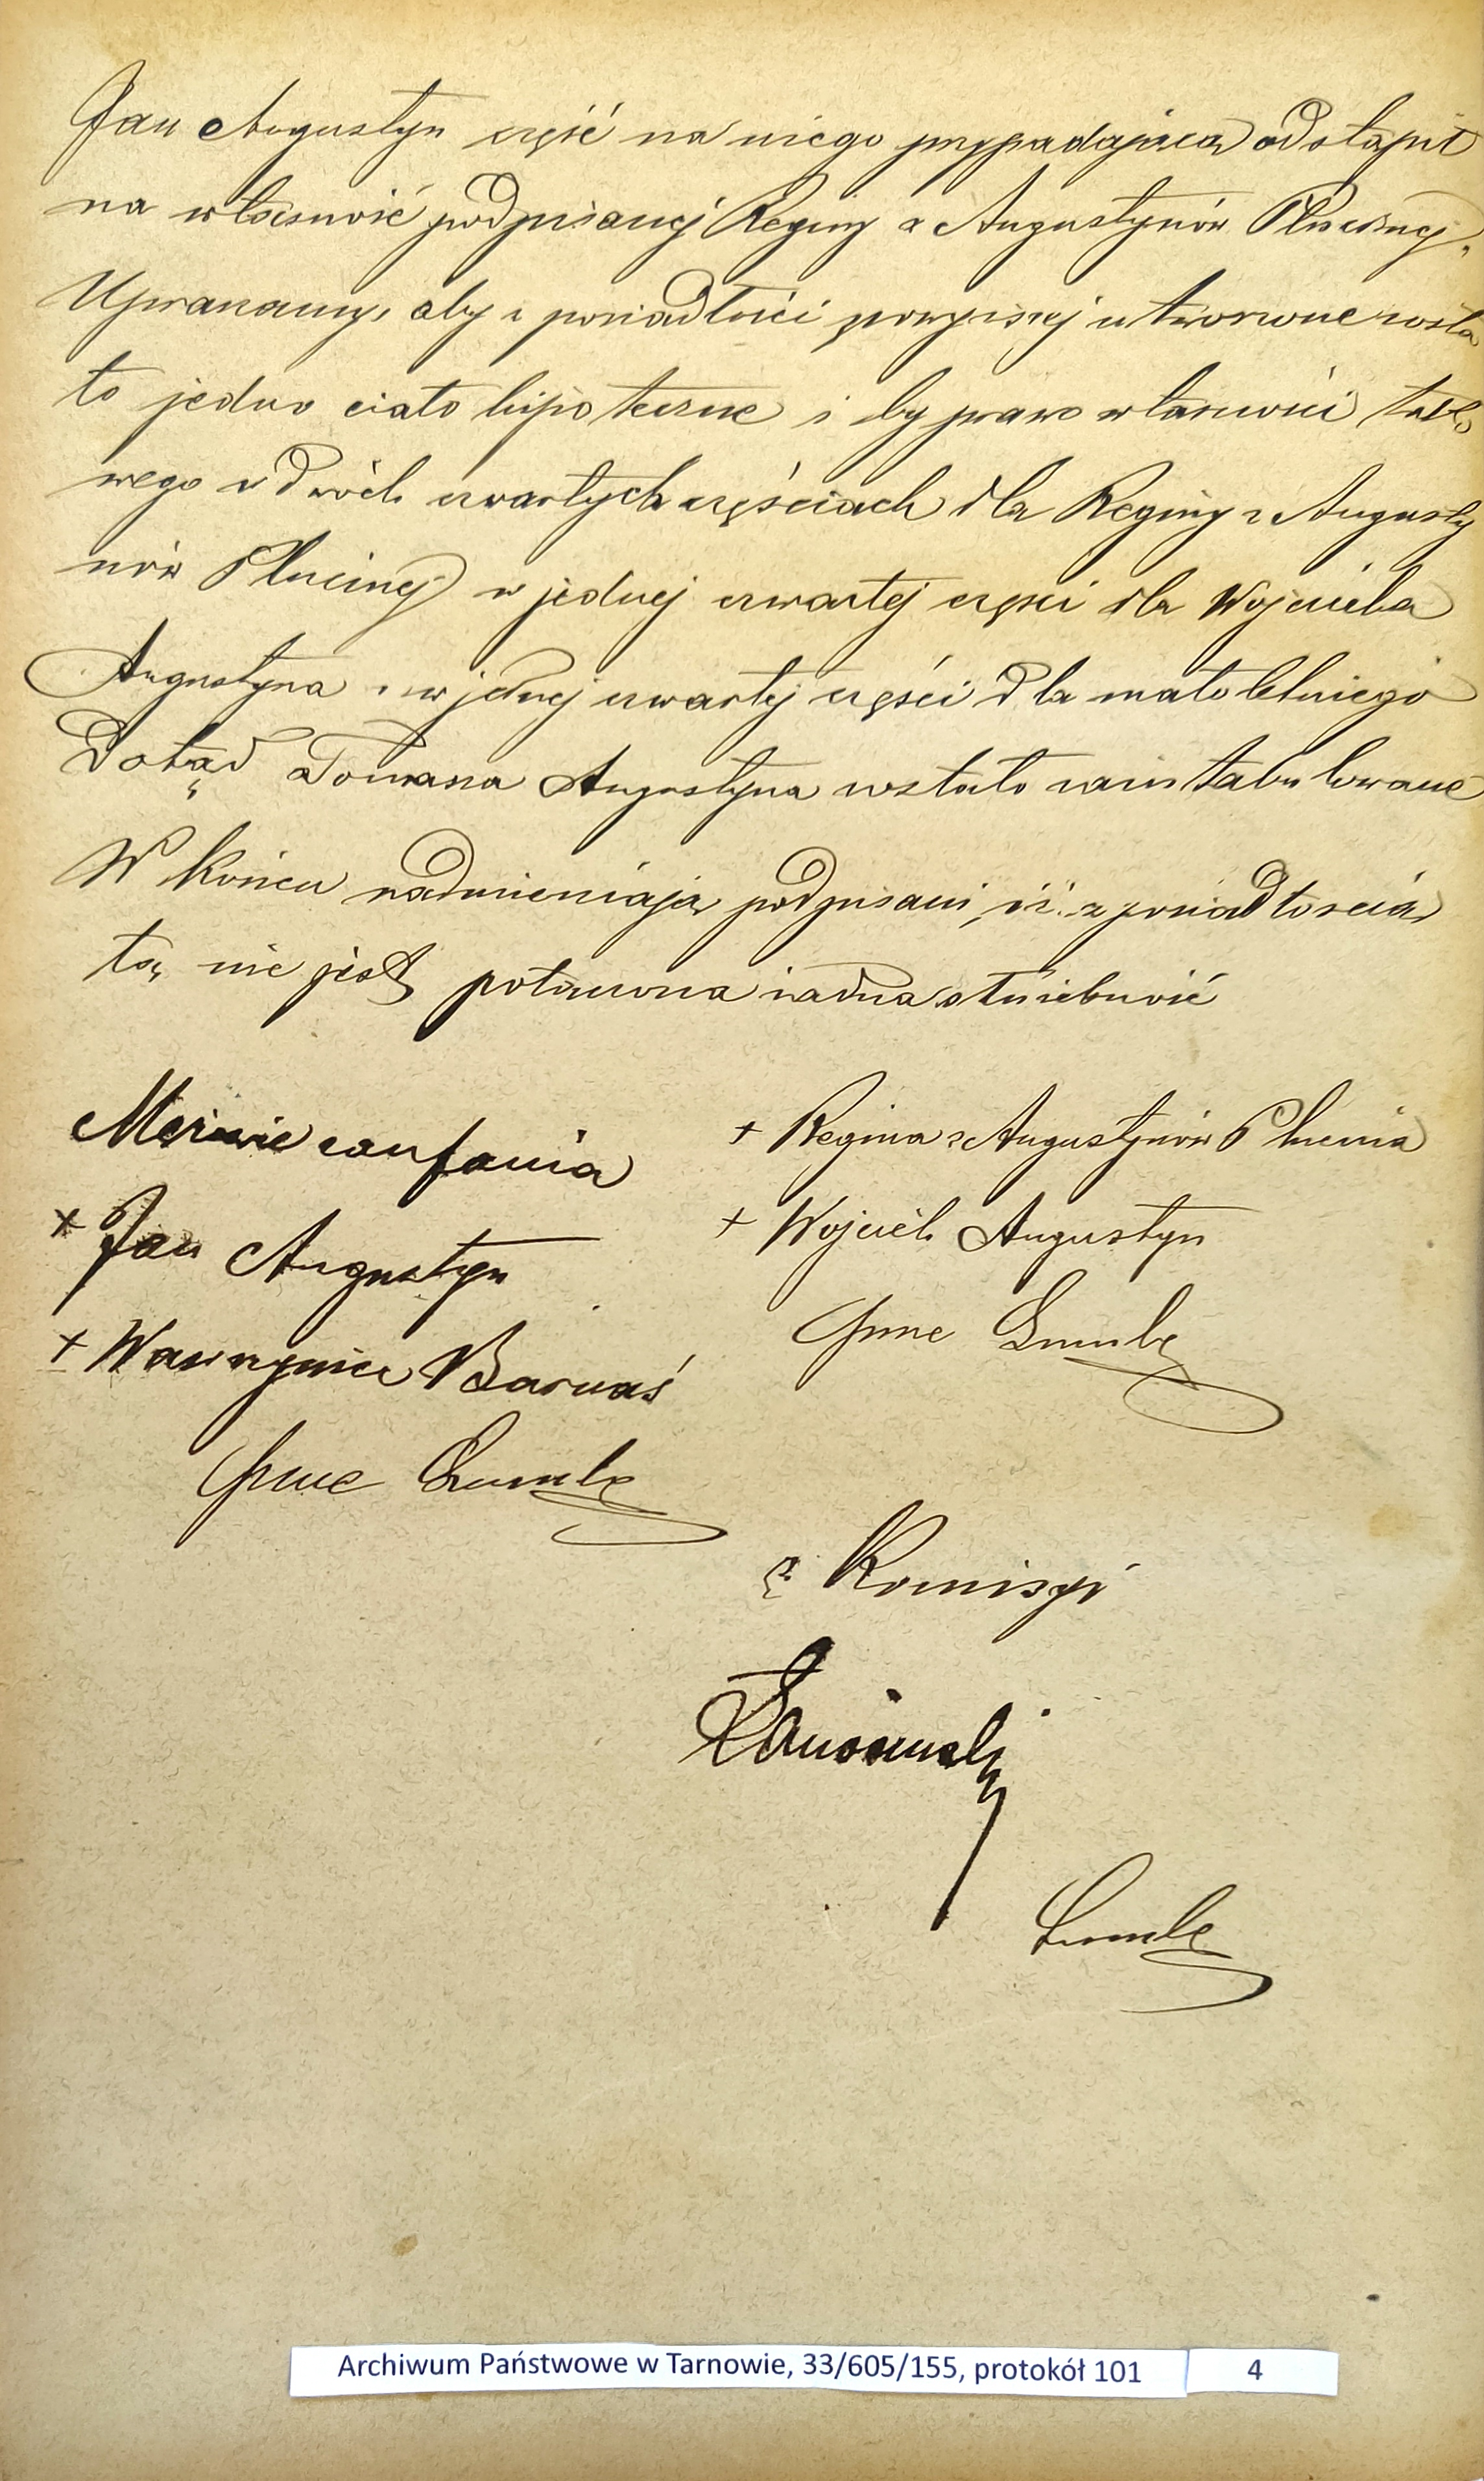 Jan Augustyn część na niego przypadającą odstąpił
na własność podpisanej Reginy z Augustynów Plucinej.
Upraszamy, aby z posiadłości powyższej utworzone zosta
ło jedno ciało hipoteczne i by prawo własności tako
wego w dwóch czwartych częściach dla Reginy z Augusty
nów Plucinej w jednej czwartej części dla Wojciecha
Augustyna w jednej czwartej części dla małoletniego
dotąd Tomasza Augustyna zostało zaintabulowane
W końcu nadmieniają podpisani, iż z posiadłością
tą nie jest połączona żadna służebność
Mężowie zaufania
+ Jan Augustyn
+ Wawrzyniec Barnaś
+ Regina z Augustynów Plucina
+ Wojciech Augustyn
z Komisyi
Archiwum Państwowe w Tarnowie, 33/605/155, protokół 101 4